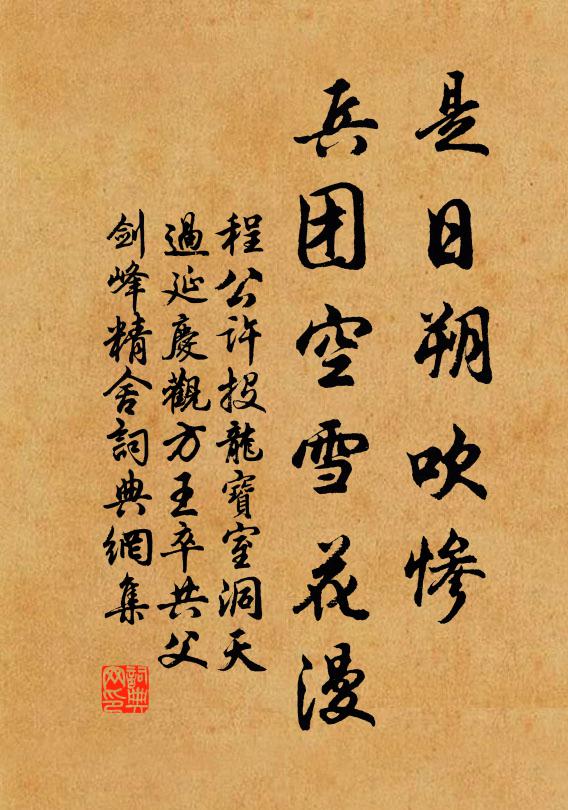 是日朔吹慘
兵团空雪花漫
程公许投龍寶室洞天
過延慶觀方王卒共父
剑峰精舍詞典網集
詞典網印